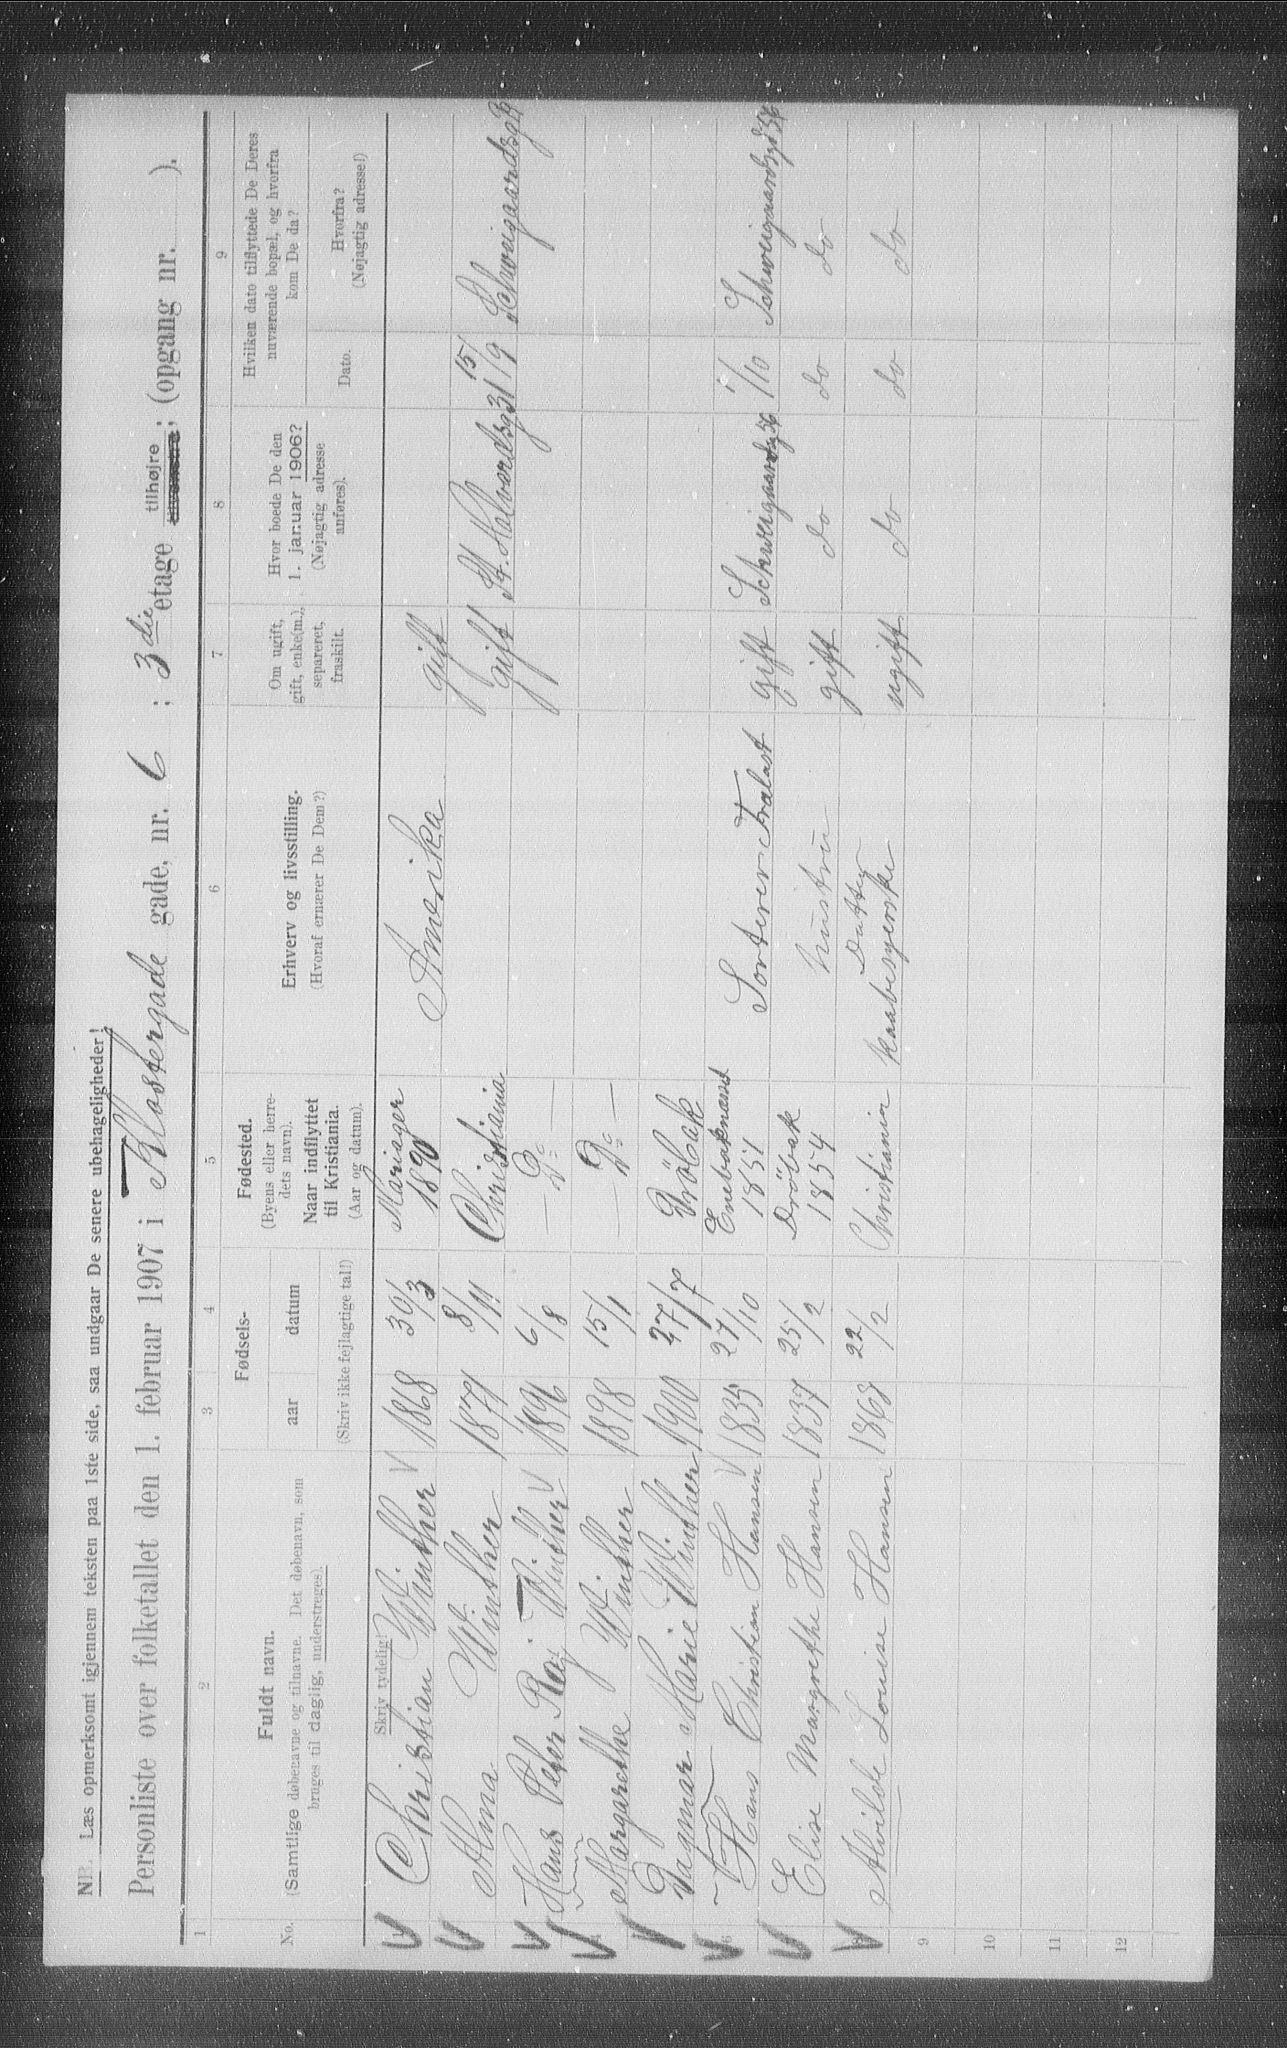 NB. Læs opmerksomt igjennem teksten paa 1ste side, saa undgaar De senere ubehageligheder!
Personliste over folketallet den 1. februar 1907 i Klostergade gade, nr. 6 ; 3die etage tilhøjre ; (opgang nr. ).
1 2 3 4 5 6 7 8 9
No.
Fuldt navn.
(Samtlige døbenavne og tilnavne. Det døbenavn, som
bruges til daglig, understreges).
Fødsels-
aar datum
(Skriv ikke fejlagtige tal!)
Fødested.
(Byens eller herre-
dets navn).
Naar indflyttet
til Kristiania.
(Aar og datum).
Erhverv og livsstilling.
(Hvoraf ernærer De Dem?)
Om ugift,
gift, enke(m.),
separeret,
fraskilt.
Hvor boede De den
1. januar 1906?
(Nøjagtig adresse
anføres).
Hvilken dato tilflyttede De Deres
nuværende bopæl, og hvorfra
kom De da?
Dato.
Hvorfra?
(Nøjagtig adresse!)
Skriv tydelig!
Christian Winther 1868 30/3 Mariager 1890 Amerika gift
Alma Winther 1871 8/11 Christiania gift St. Halvordsg 31 15/9 Schweigaardsg
Hans Peter Winther 1896 6/8 — Do —
Margarethe Winther 1898 15/1 — Do —
Dagmar Marie Winther 1900 27/7 Drøbak
6 Hans Christian Hansen 1835 27/10 Enebaknæsset 1851 Sorterer Trælast gift Schweigaardsg 56 1/10 Schweigaardsgd 56
Elise Margrethe Hansen 1837 25/2 Drøbak 1854 hustru gift do do do
8 Alvilde Louise Hansen 1868 22/2 Christiania Datter Kaabesyerske ugift do do do
9
10
11
12